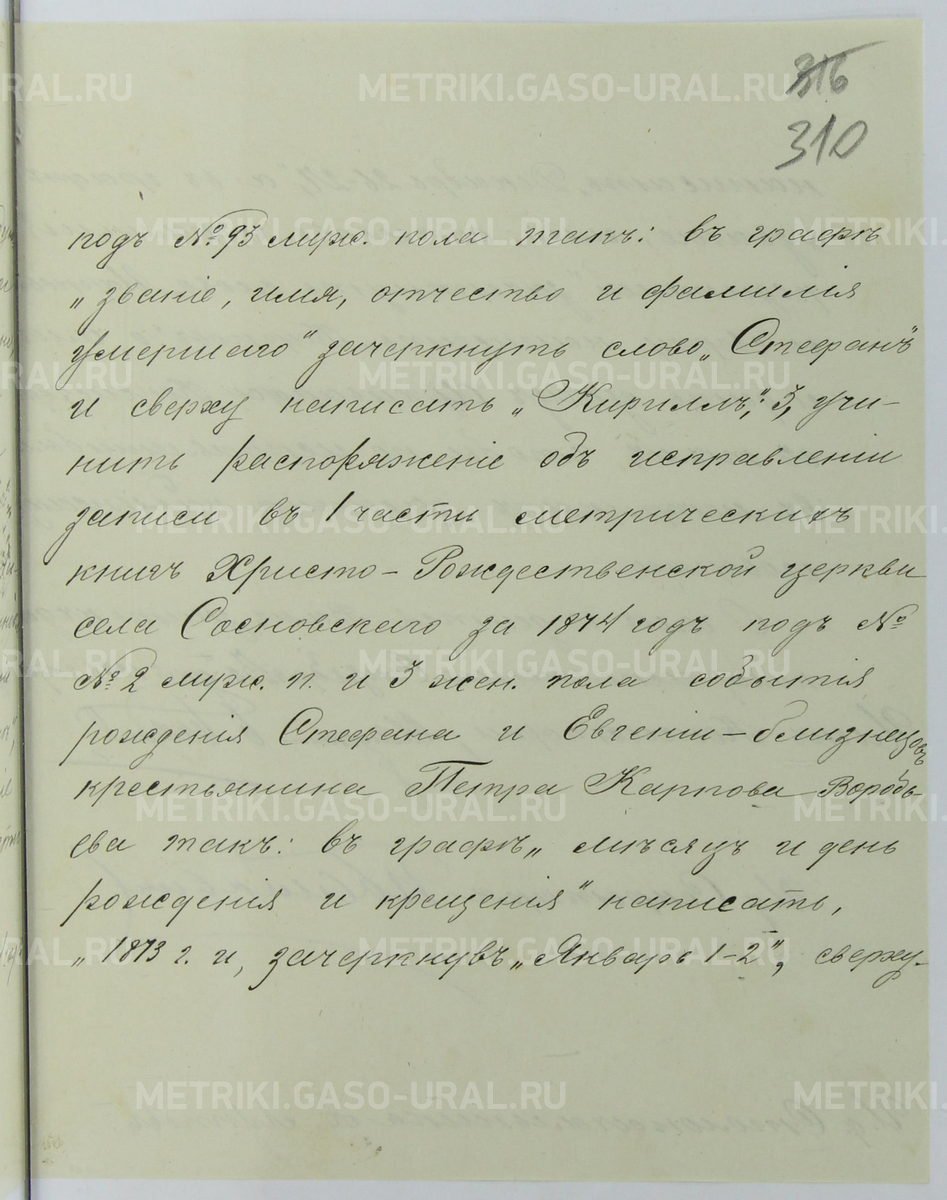 316
310
подъ № 93 муж. пола такъ: въ графѣ
„званіе, имя, отчество и фамилія
умершаго" зачеркнуть слово „Стефанъ"
и сверху написать „Кириллъ"; 3, учи-
нить распоряженіе объ исправленіи
записи въ 1 части метрическихъ
книгъ Христо-Рождественской церкви
села Сосновскаго за 1874 годъ подъ №
№ 2 муж. п. и 3 жен. пола событія
рожденія Стефана и Евгеніи - близнецовъ
крестьянина Петра Карпова Воробь
ева такъ: въ графѣ „мѣсяцъ и день
рожденія и крещенія" написать,
„1873 г. и, зачеркнувъ „Январь 1-2", сверху
METRIKI.GASO-URAL.RU